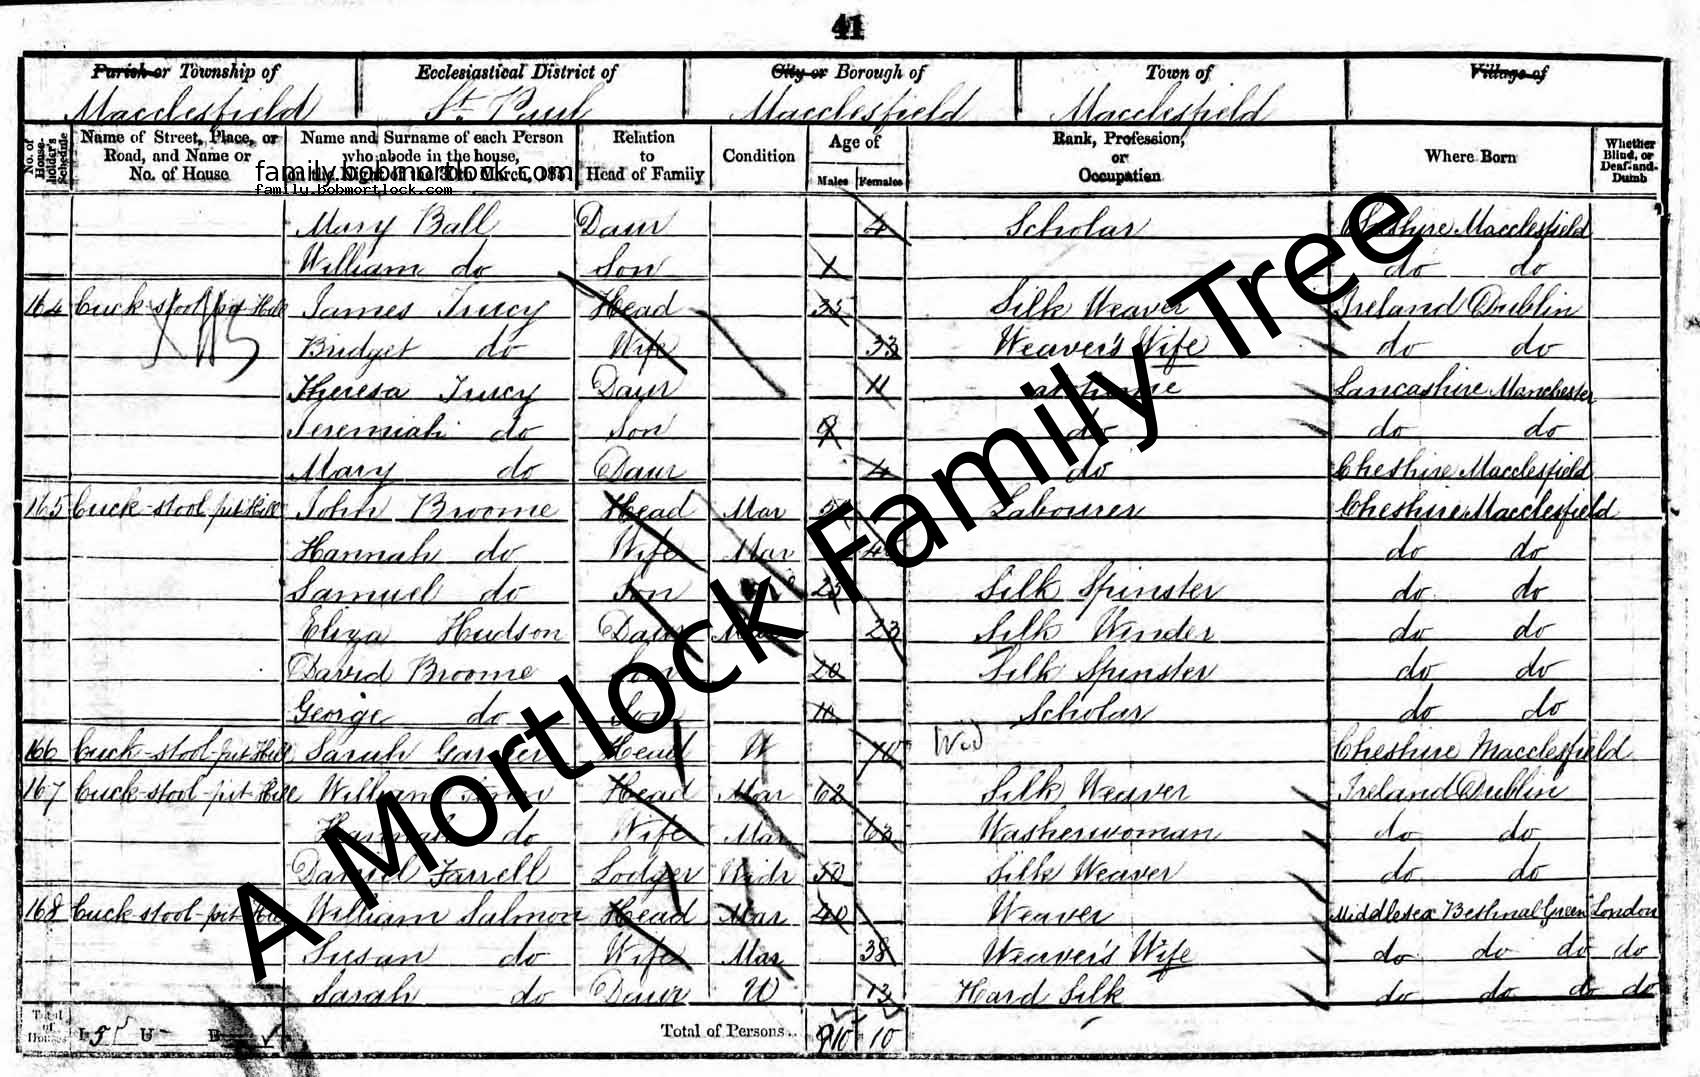 41
Parish or Township of Ecclesiastical District of City or Borough of Town of Village of
Macclesfield St. Paul Macclesfield Macclesfield
No. of House-holder's Schedule Name of Street, Place, or Road, and Name or No. of House Name and Surname of each Person who abode in the house, on the Night of the 30th March, 1851 Relation to Head of Family Condition Age of Males Females Rank, Profession, or Occupation Where Born Whether Blind, or Deaf-and-Dumb
family.bobmortlock.com
family.bobmortlock.com
Mary Ball Daur 4 Scholar Cheshire Macclesfield
William do Son 1 do do
164 Cuck-stool-pit-Hill James Trucy Head 35 Silk Weaver Ireland Dublin
Bridget do Wife 33 Weaver's Wife do do
Theresa Trucy Daur 11 at home Lancashire Manchester
Jeremiah do Son do do do
Mary do Daur 4 do Cheshire Macclesfield
165 Cuck-stool-pit-Hill John Broome Head Mar Labourer Cheshire Macclesfield
Hannah do Wife Mar do do
Samuel do Son 25 Silk Spinster do do
Eliza Hudson Daur Mar 23 Silk Winder do do
David Broome Son 20 Silk Spinster do do
George do Son 10 Scholar do do
166 Cuck-stool-pit-Hill Sarah Head W Wid Cheshire Macclesfield
167 Cuck-stool-pit-Hill William Head Mar 62 Silk Weaver Ireland Dublin
Hannah do Wife Mar 63 Washerwoman do do
Daniel Farrell Lodger Widr 50 Silk Weaver do do
168 Cuck-stool-pit-Hill William Salmon Head Mar 40 Weaver Middlesex Bethnal Green London
Susan do Wife Mar 38 Weaver's Wife do do do do
Sarah do Daur U 13 Hard Silk do do do do
Total of Houses I 5 U - B - Total of Persons.. 10 10
A Mortlock Family Tree